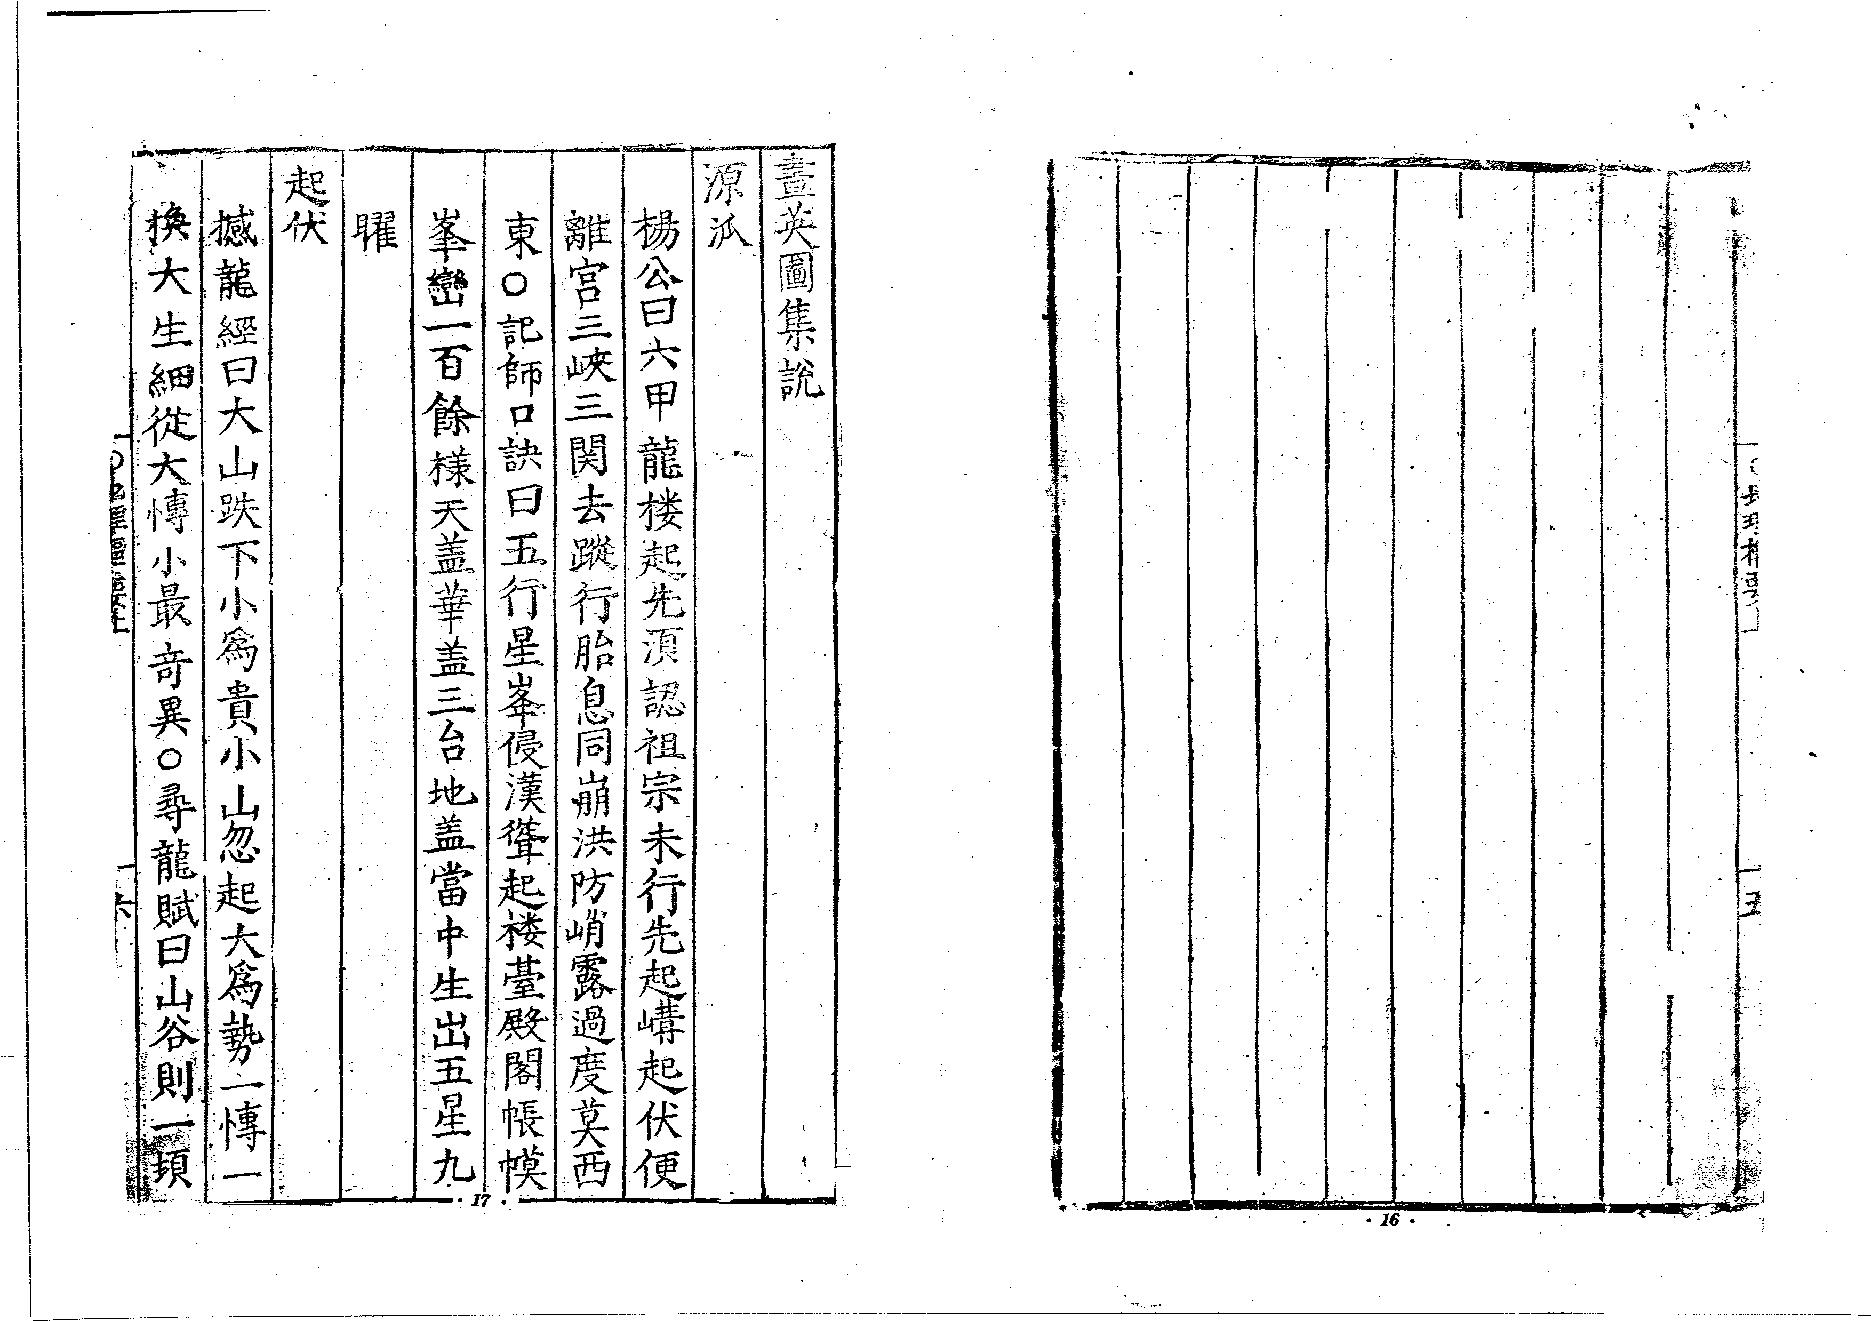 地理樞要上
十五
16
畫英圖集說
源泒
楊公曰六甲龍楼起先湏認祖宗未行先起構起伏便
離宮三峽三関去蹤行胎息同崩洪防峭露過度莫西
東〇記師口訣曰五行星峯侵漢聳起楼䑓殿閣帳幙
峯巒一百餘様天盖華盖三台地盖當中生出五星九
曜
起伏
撼龍經曰大山跌下小為貴小山忽起大為勢一慱一
換大生細從大慱小最竒異〇尋龍賦曰山谷則一頃
地理樞要上
十六
17